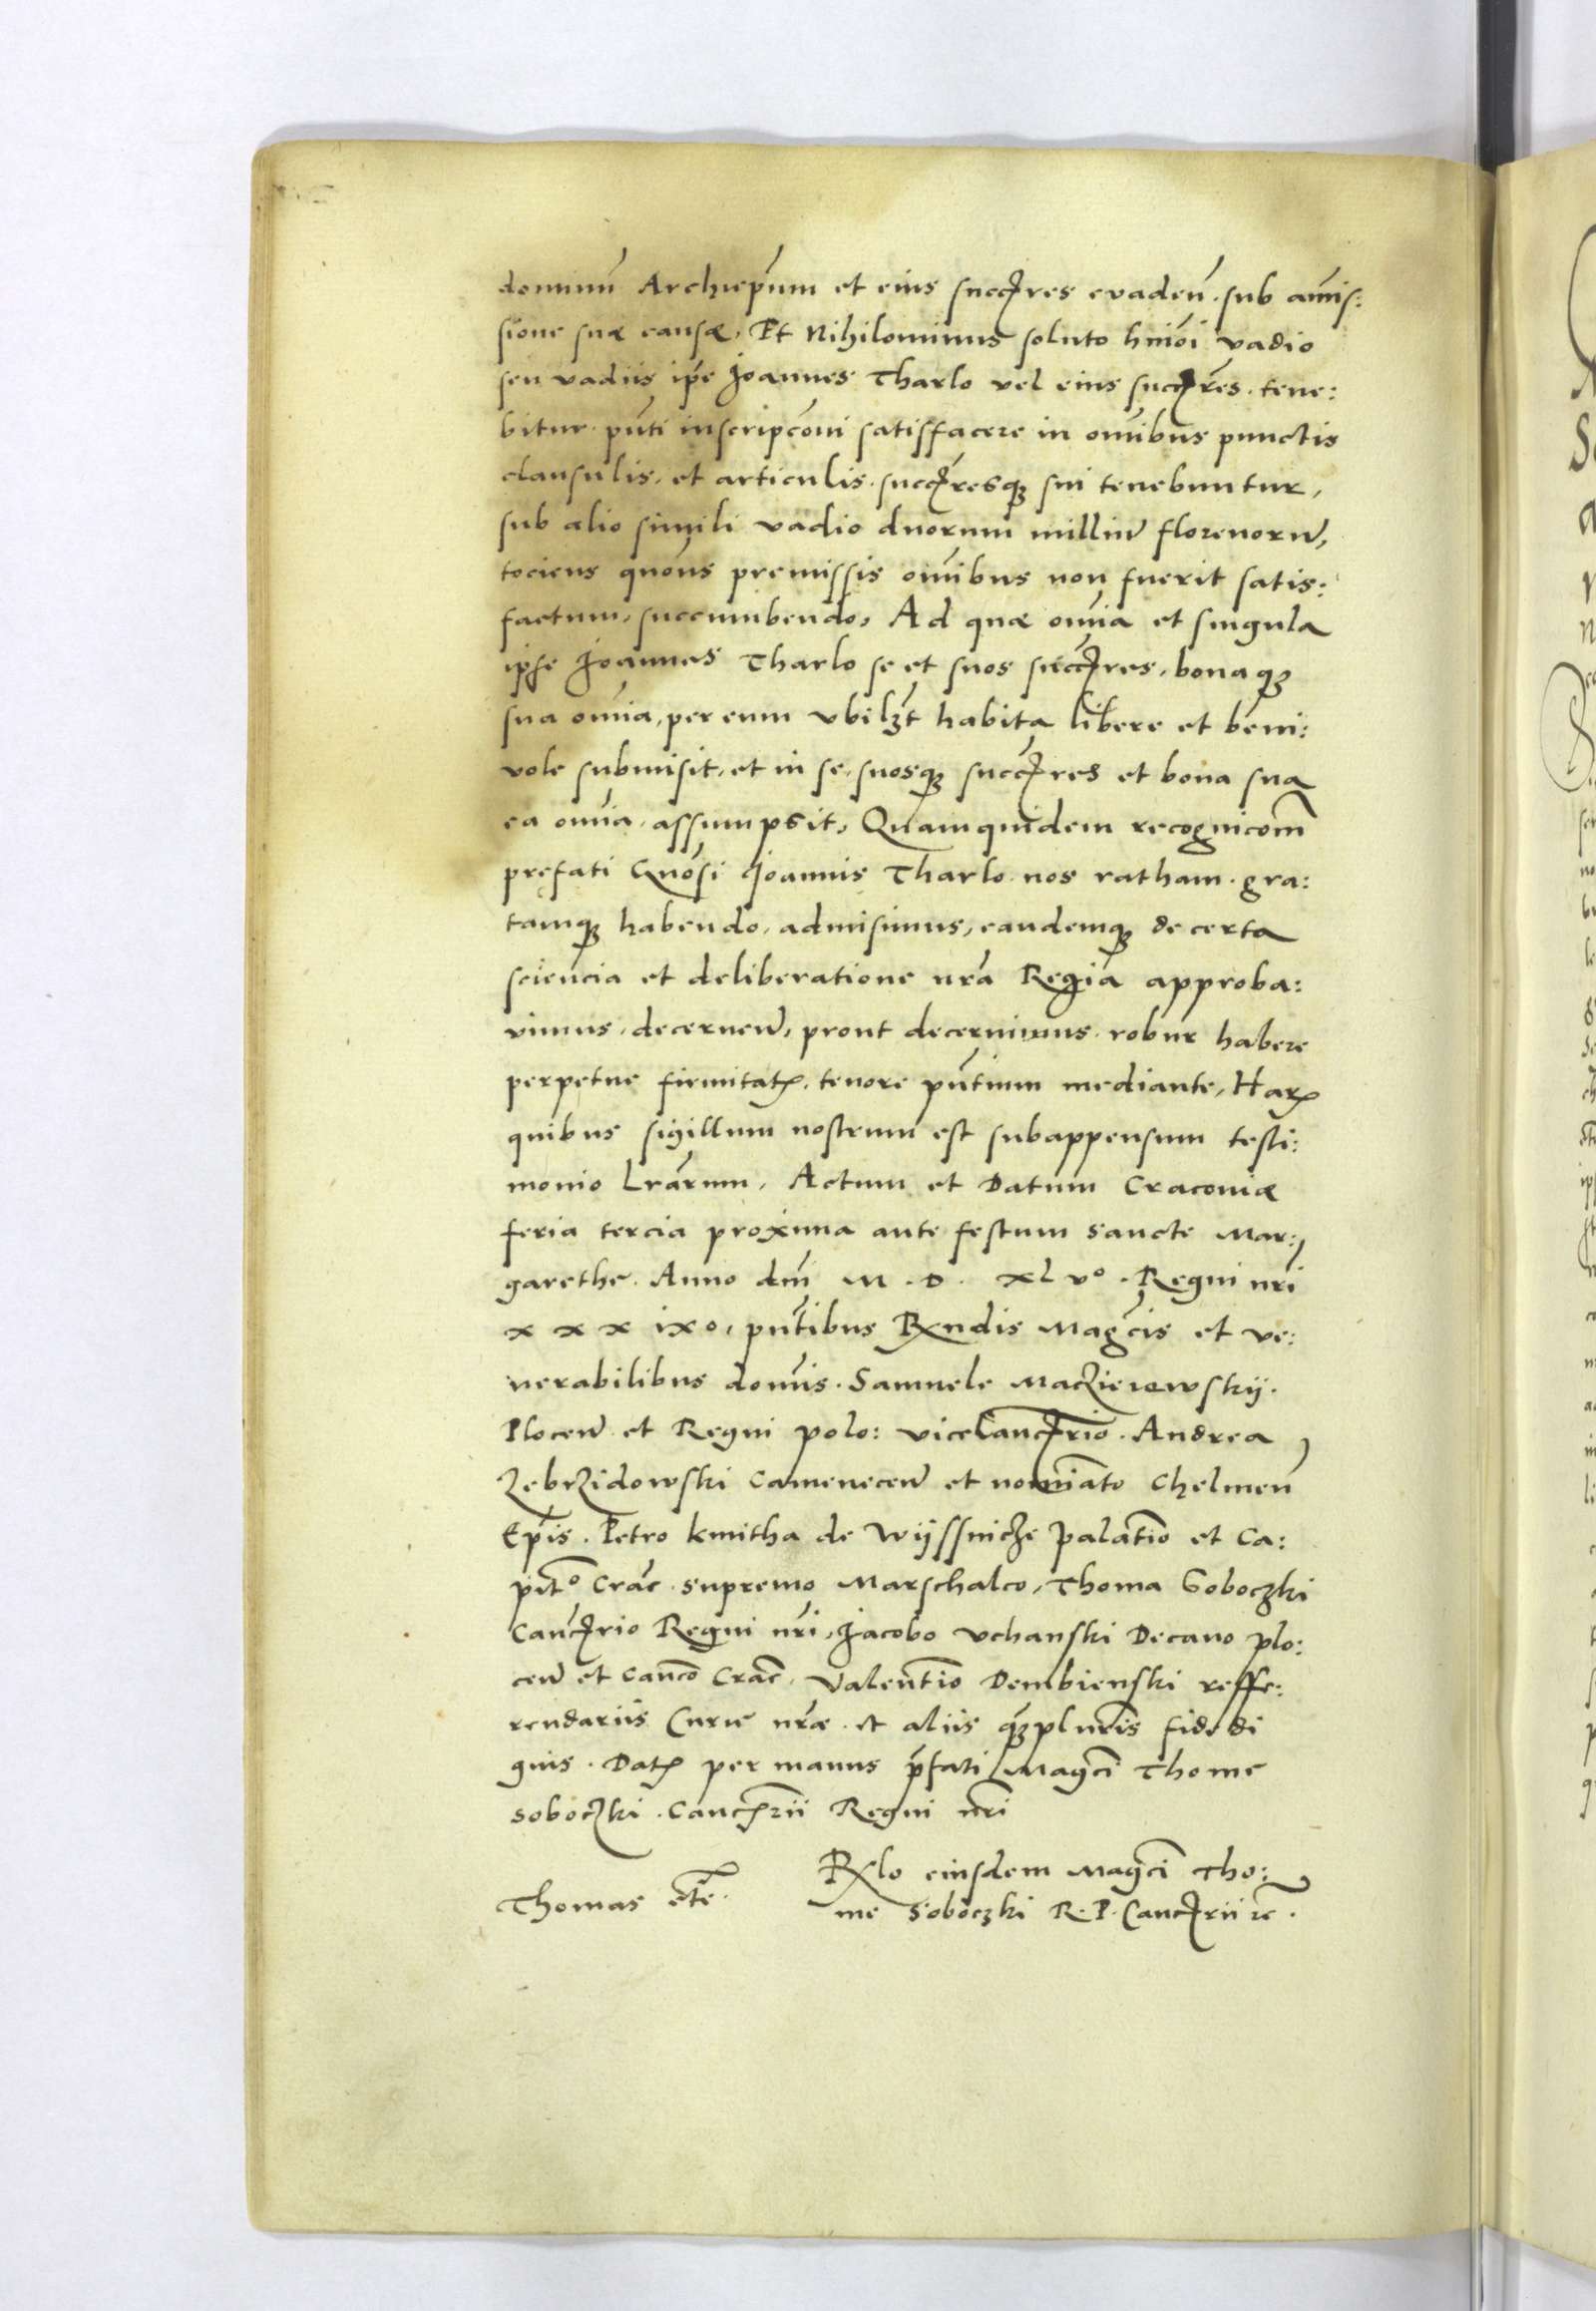 dominū Archiepūm et eius succres evadeñ. sub amis:
sione suæ causæ, Et Nihilominus soluto hmōi vadio
seu vadiis ipē Joannes Tharlo vel eius succres. tene:
bitur. pūti inscripcōni satisffacere in omībus punctis
clausulis, et articulis. succresq sui tenebuntur,
sub alio simili vadio duorum milliū florenorū,
tociens quoñs premissis omībus non fuerit satis:
factum, succumbendo, Ad quæ omīa et singula
ipse Joannes Tharlo se et suos succres, bonaq
sua omīa, per eum ubilȝt habita libere et bēni:
vole submisit, et in se, suosq succres et bona sua
ea omīa, assumpsit, Quamquidem recognicōm
prefati Gnōsi Joannis Tharlo. nos ratham. gra:
tamq habendo, admisimus, eandemq de certa
sciencia et deliberatione nrā Regia approba:
vimus. decerneñ, prout decernimus. robur habere
perpetue firmitatꝫ, tenore pūtium mediante, Harꝫ
quibus sigillum nostrum est subappensum testi:
monio Lrārum, Actum et Datum Cracoviæ
feria tercia proxima ante festum sancte Mar:
garethe. Anno dnī M. D. xlvº. Regni nrī
x x x ixo, pūtibus Rndis Magcis et ve:
nerabilibus domīs. Samuele Maczieiowskÿ.
Ploceñ et Regni polo: viceCancrio. Andrea
Zebrzidowski Cameneceñ et nomīato Chelmeñ
Epīs. Petro kmitha de Wÿssnicze Palatīo et Ca:
pitº Crāc supremo Marschalco, Thoma Soboczki
Cancrio Regni nrī, Jacobo Uchanski Decano plo:
ceñ et Canco Crāc, Valentīo Dembienski reffe:
rendariis Curie nrǣ. et aliis qȝpluris fidedi
gnis. Datꝫ per manus p̄fati Magci Thome
Soboczki. Cancrii Regni nrī
Thomas etc̄. Rlo eiusdem Magci Tho:
me Soboczki R. P. Cancrii ꝛc.